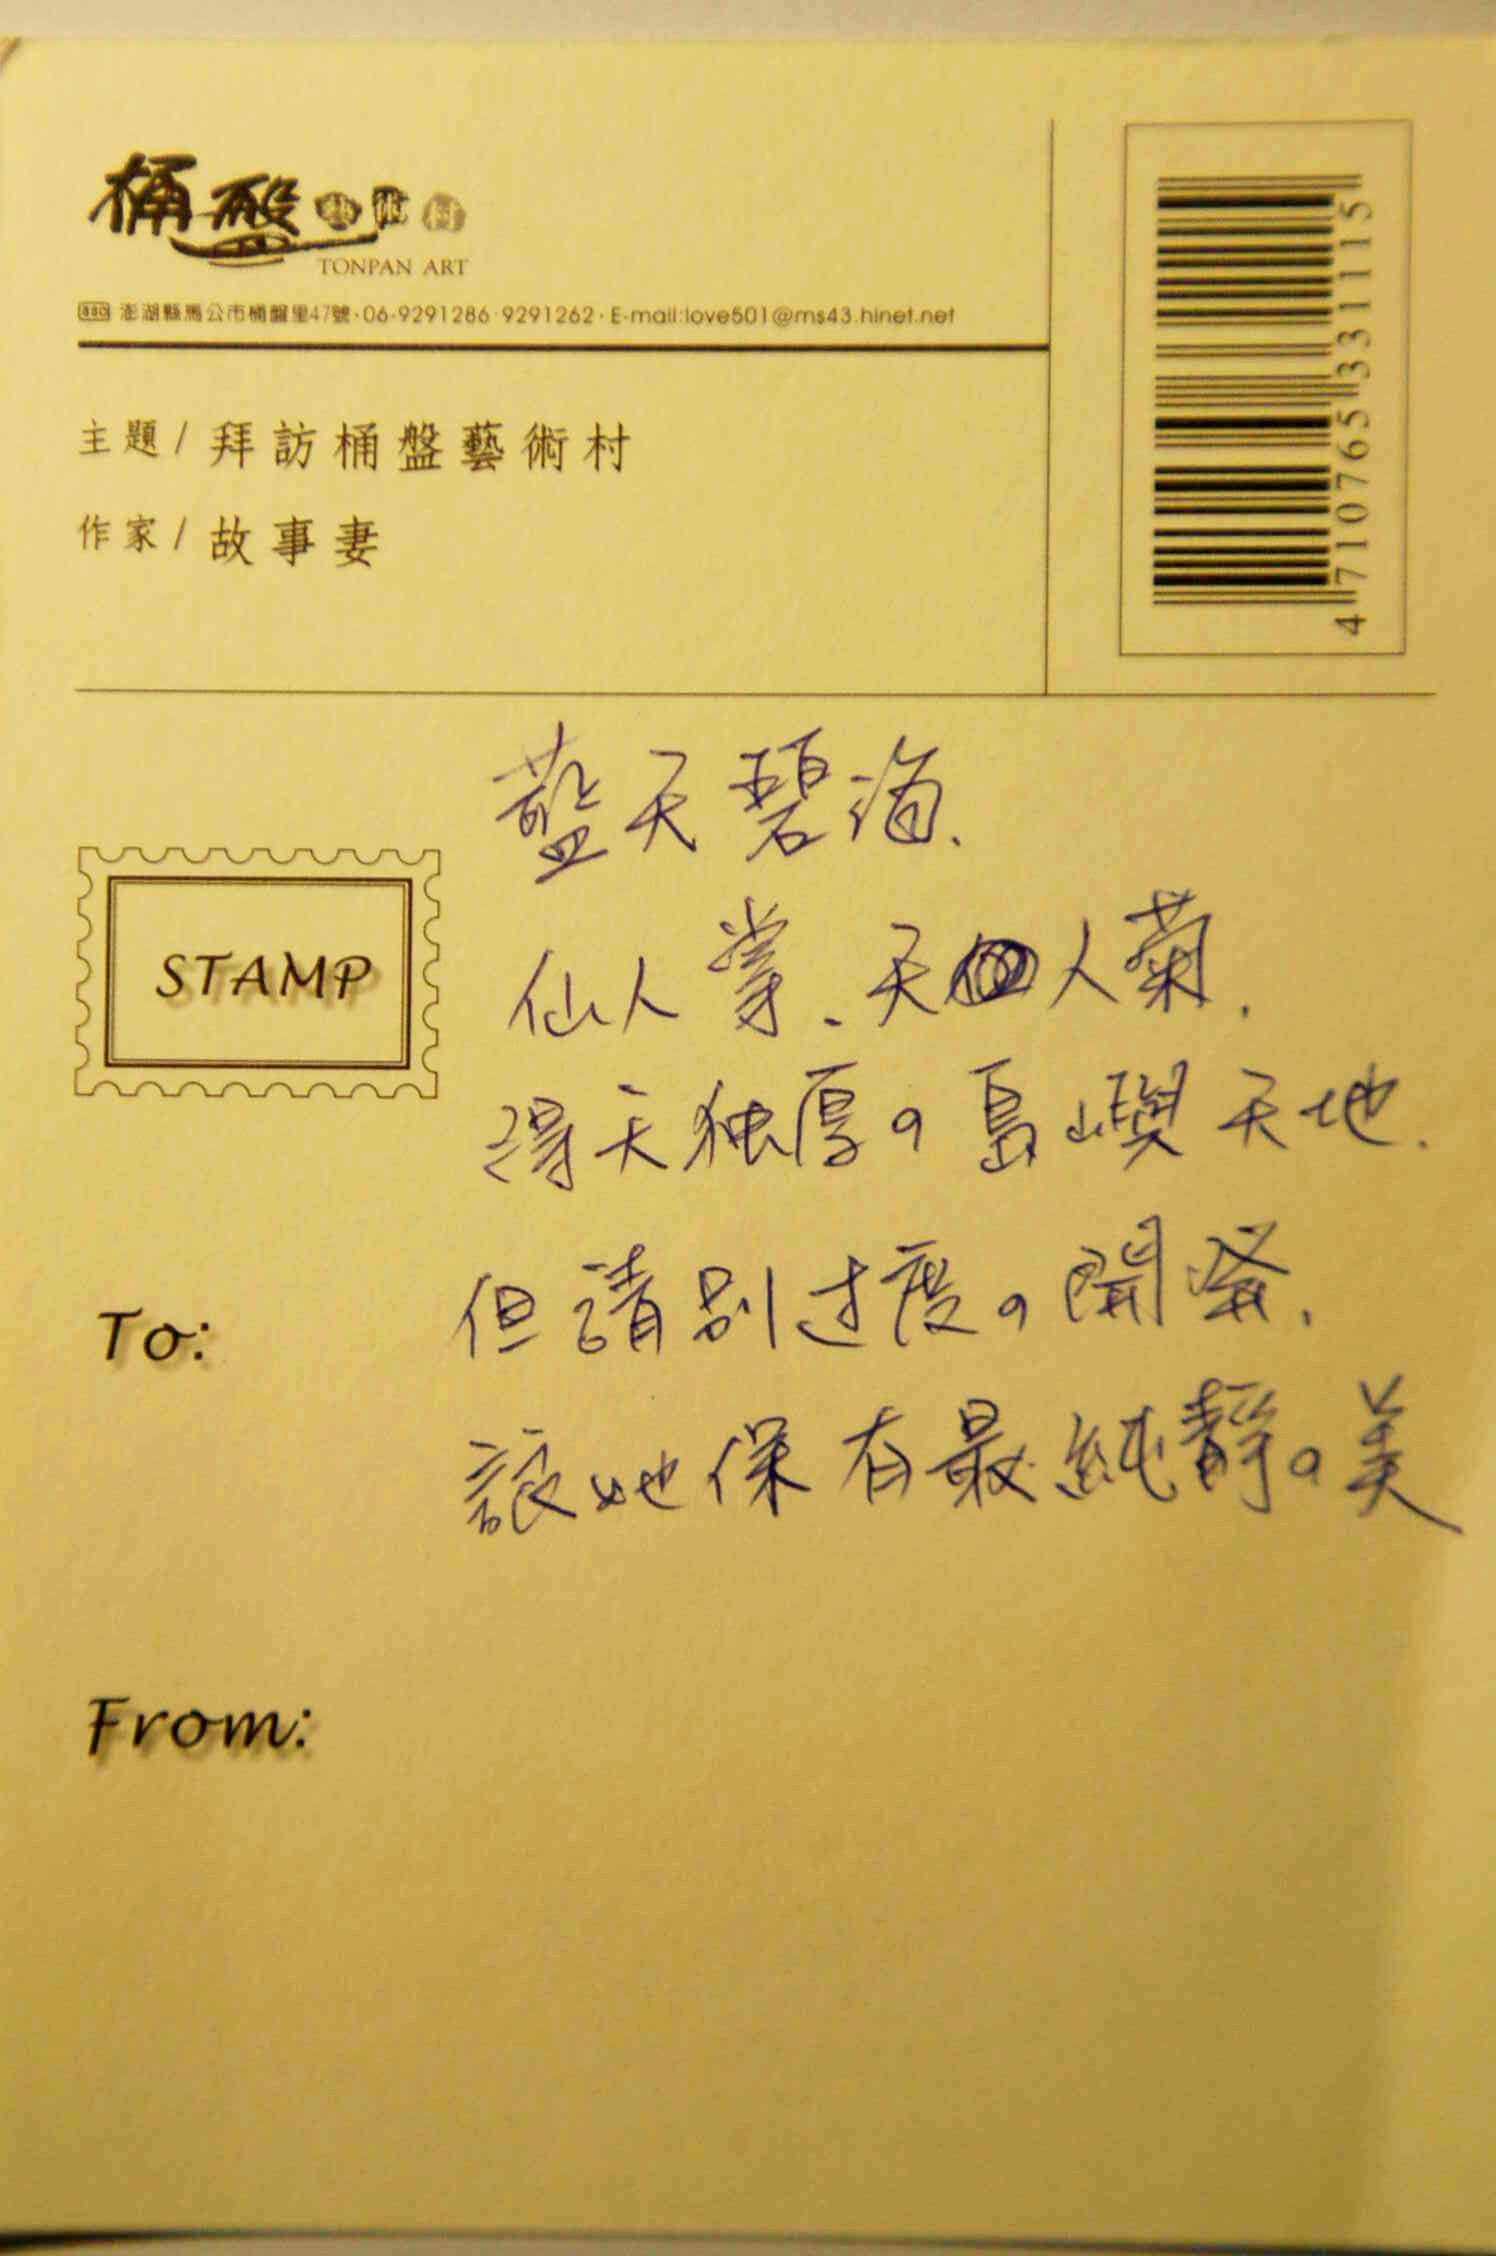 桶盤藝術村
TONPAN ART
880 澎湖縣馬公市桶盤里47號·06-9291286·9291262·E-mail:love501@ms43.hinet.net
4710765331115
主題/拜訪桶盤藝術村
作家/故事妻
STAMP
藍天碧海、
仙人掌、天人菊、
得天独厚の島嶼天地、
但請別过度の開發、
讓她保有最純靜の美
To:
From: